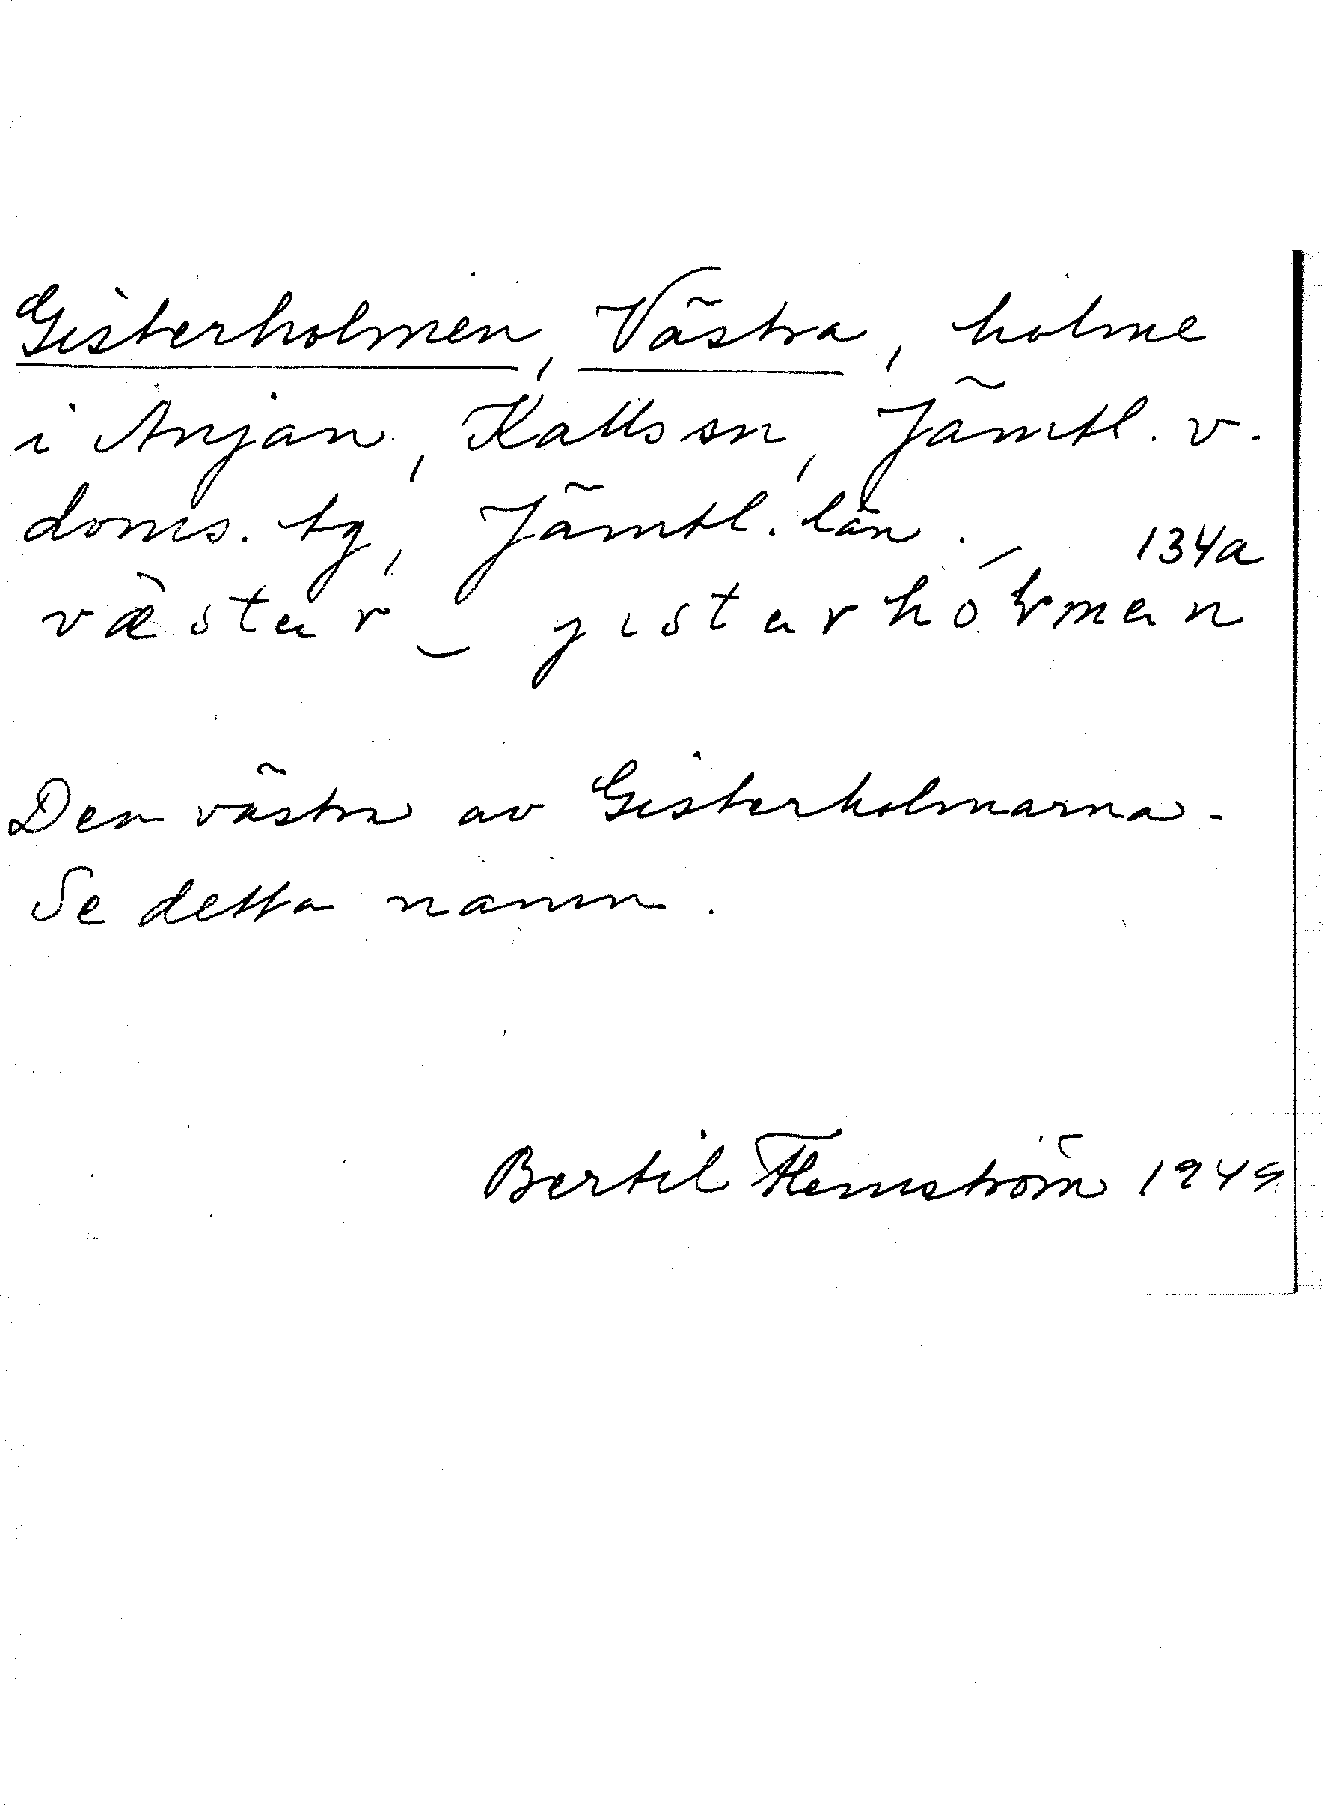 Gisterholmen, Västra, holme
i Anjan, Kalls sn, Jämtl. v.
doms. tg, Jämtl. län.
134a
væstar ‿ jıstarhólman
Den västra av Gisterholmarna.
Se detta namn.
Bertil Flemström 1949